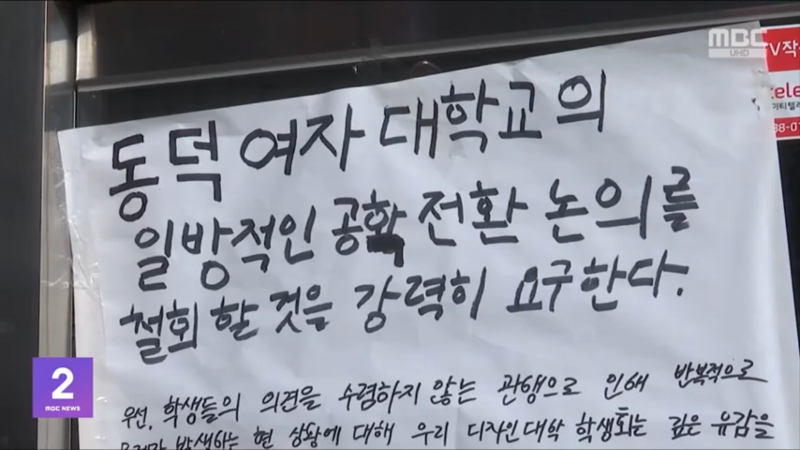 MBC
UHD
TV작
tele
38-0
동덕 여자 대학교의
일방적인 공학 전환 논의를
철회할 것을 강력히 요구한다.
우선, 학생들의 의견을 수렴하지 않는 관행으로 인해 반복적으로
발생하는 현 상황에 대해 우리 디자인대학 학생회는 깊은 유감을
2
MBC NEWS